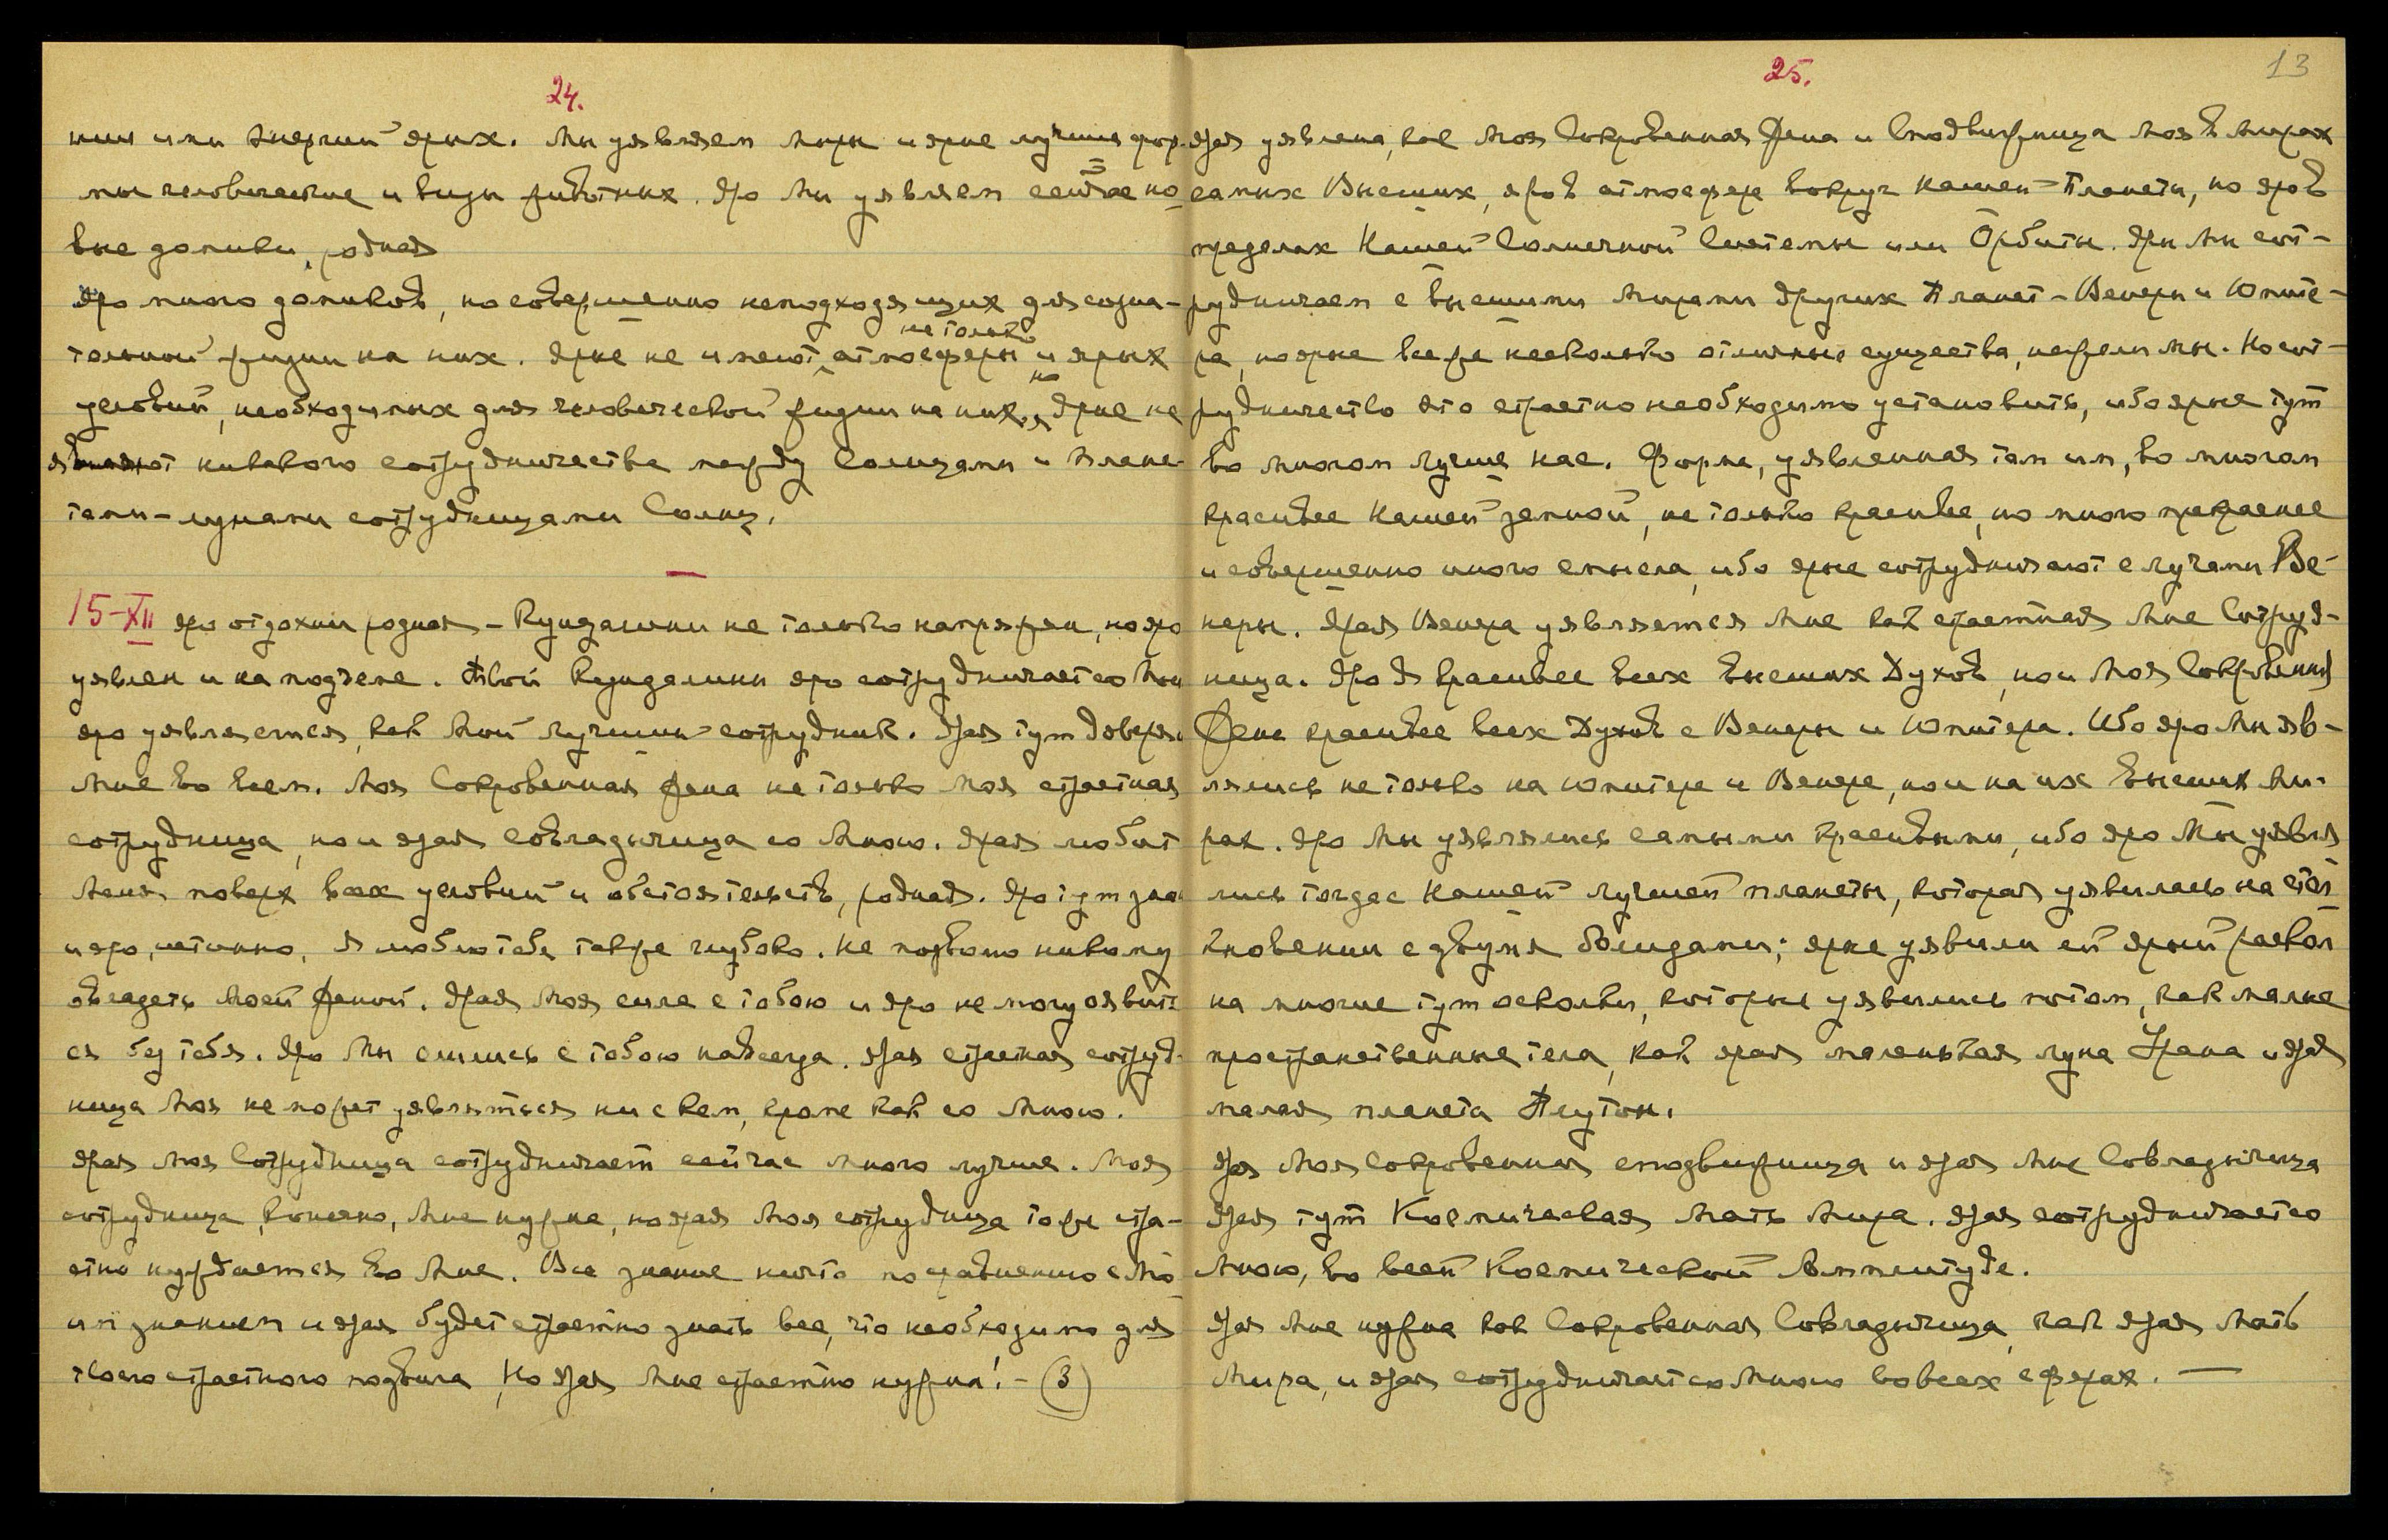 24.
нии или энергий ярых. Мы уявляем миры и ярые лучшие фор-
мы человеческие и виды животных. Яро Мы уявляем сейчас но-
вые домики, родная
Яро много домиков, но совершенно неподходящих для созна-
тельной жизни на них. Ярые не имеют не только атмосферы но и ярых
условий, необходимых для человеческой жизни на них. Ярые не
являют никакого сотрудничества между Солнцами и плане-
тами-лунами сотрудницами Солнц.
15-XII Яро отдохни родная – Кундалини не только напряжен, но яро
уявлен и на подъеме. Твой Кундалини яро сотрудничает со Мной
яро уявляется, как Мой лучший сотрудник. Ярая тут доверяй
Мне во всем. Моя Сокровенная Жена не только Моя страстная
сотрудница, но и ярая Совладычица со Мною. Ярая любит
Меня поверх всех условий и обстоятельств, родная. Яро тут знаю
и яро, истинно, Я люблю тебя также глубоко. Не позволю никому
овладеть Моей Женой. Ярая Моя сила с тобою и яро не могу оявить-
ся без тебя. Яро Мы слились с тобою навсегда. Ярая страстная сотруд-
ница Моя не может уявляться ни с кем, кроме как со Мною.
Ярая Моя Сотрудница сотрудничает сейчас много лучше. Моя
сотрудница, конечно, Мне нужна, но ярая Моя сотрудница тоже стра-
стно нуждается во Мне. Все знание ничто по сравнению с Мо-
им знанием и ярая будет страстно знать все, что необходимо для
твоего страстного подвига, Но Ярая Мне страстно нужна! – (3)
25.
13
Ярая уявлена, как Моя Сокровенная Жена и Сподвижница Моя в Мирах
самых Высших, яро в атмосфере вокруг нашей Планеты, но яро в
пределах Нашей Солнечной Системы или Орбиты. Яры Мы сот-
рудничаем с высшими Мирами других Планет – Венеры и Юпите-
ра, но ярые все же несколько отличные существа, нежели мы. Но сот-
рудничество это страстно необходимо установить, ибо ярые тут
во многом лучше нас. Форма, уявленная там им, во многом
красивее Нашей земной, не только красивее, но много прекраснее
и совершенно иного смысла, ибо ярые сотрудничают с лучами Ве-
неры. Ярая Венера уявляется Мне как страстная Мне Сотруд-
ница. Яро Я красивее всех высших Духов, но и Моя Сокровенная
Жена красивее всех Духов с Венеры и Юпитера. Ибо яро Мы яв-
лялись не только на Юпитере и Венере, но и на их высших Ми-
рах. Яро Мы уявлялись самыми красивыми, ибо яро Мы уявля
лись тогда с Нашей лучшей планеты, которая уявилась на стол-
кновении с двумя болидами; ярые уявили ей ярый раскол
на многие тут осколки, которые уявились потом, как малые
пространственные тела, как ярая маленькая луна Урана и ярая
малая планета Плутон.
Ярая Моя сокровенная сподвижница и ярая Мне Совладычица
Ярая тут Космическая Мать Мира. Ярая сотрудничает со
Мною, во всей Космической Амплитуде.
Ярая Мне нужна как Сокровенная Совладычица, как ярая Мать
Мира, и ярая сотрудничает со Мною во всех сферах. —